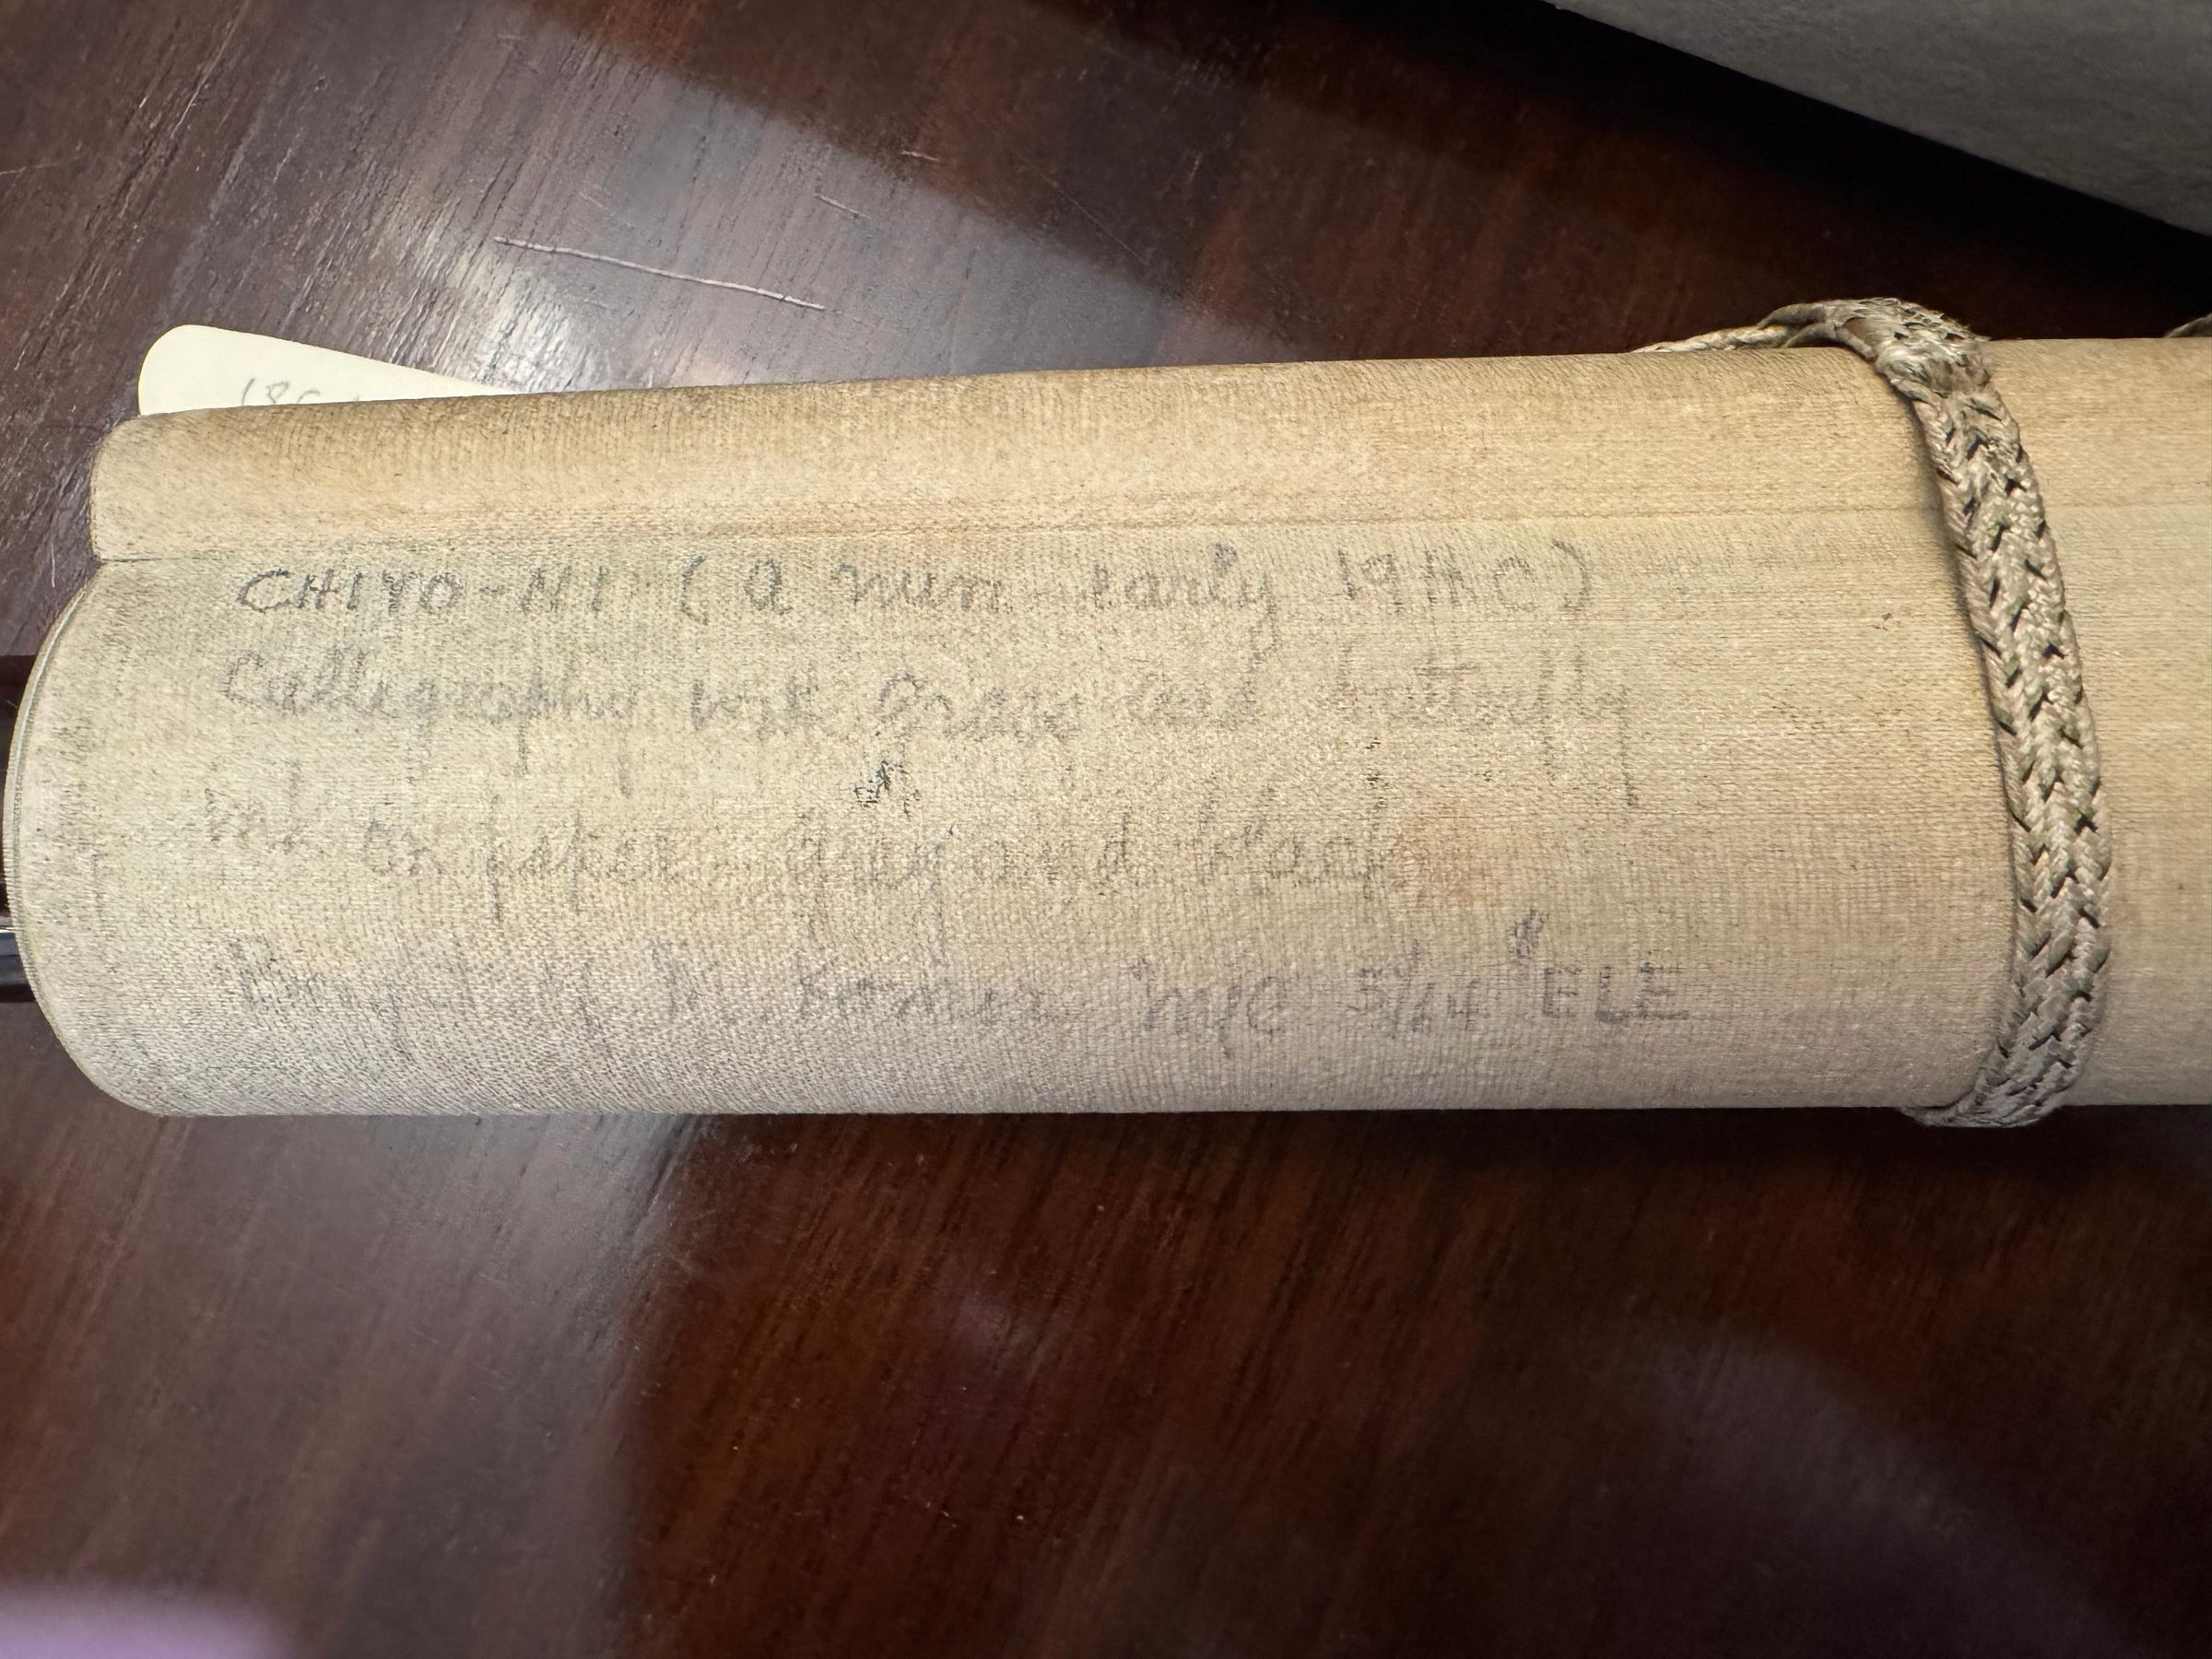 CHIYO-NI (a nun early 19th C)
Calligraphy with grass and butterfly
ink on paper grey and black
Bought of